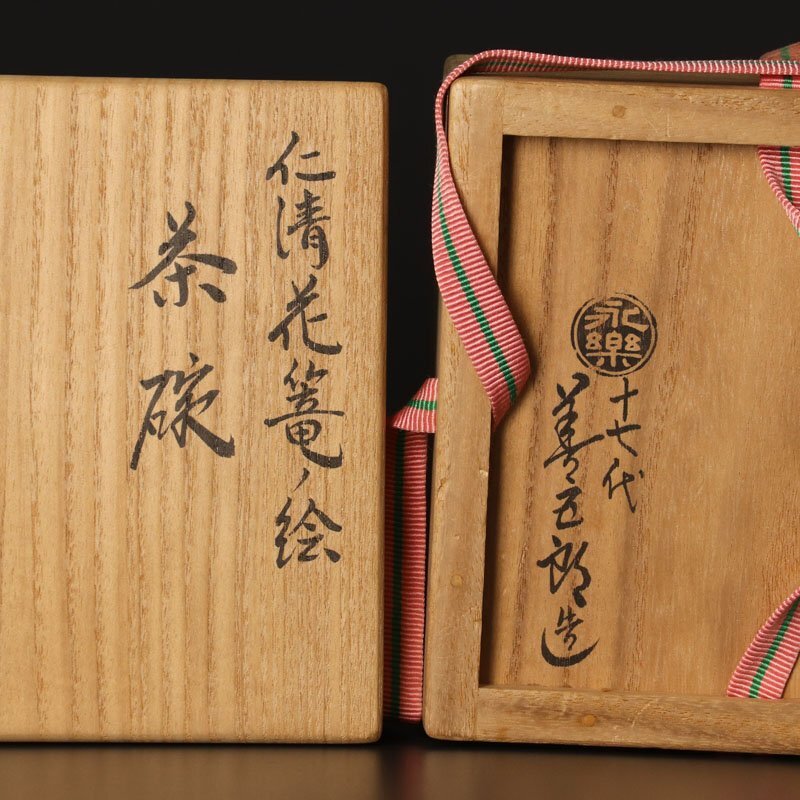 仁清花篭ノ絵
茶碗
永樂
十七代
善五郎造